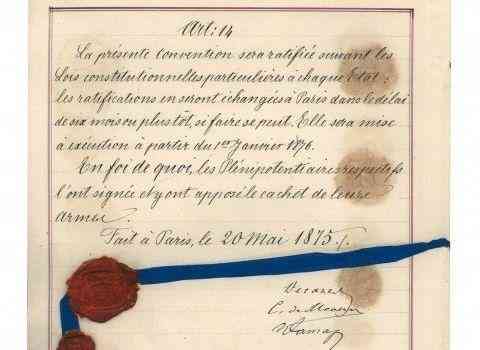 Art: 14
La présente Convention sera ratifiée suivant les
lois constitutionnelles particulières à chaque Etat;
les ratifications en seront échangées à Paris dans le délai
de six mois ou plus tôt, si faire se peut. Elle sera mise
à exécution à partir du 1er Janvier 1876.
En foi de quoi, les Plénipotentiaires respectifs
l'ont signée et y ont apposé le cachet de leurs
armes.
Fait à Paris, le 20 Mai 1875./.
Decazes